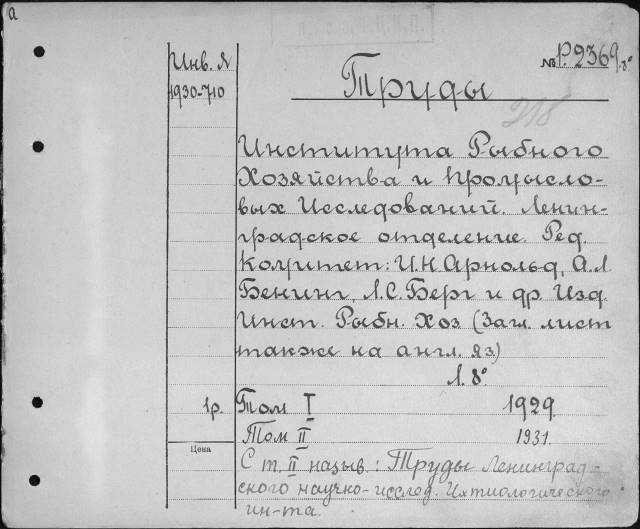 а
Инв. №
1930-710
№ Р. 2369 8°
Труды
218
Института Рыбного
Хозяйства и Промысло-
вых Исследований. Ленин-
градское отделение. Ред.
Комитет: И.Н. Арнольд, А.Л.
Бенинг, Л.С. Берг и др. Изд.
Инст. Рыбн. Хоз. (Загл. лист
также на англ. яз.)
Л. 8°
1р. Том I 1929.
Том II 1931.
Цена
С т. II назыв.: Труды Ленинград-
ского научно-исслед. Ихтиологического
ин-та.